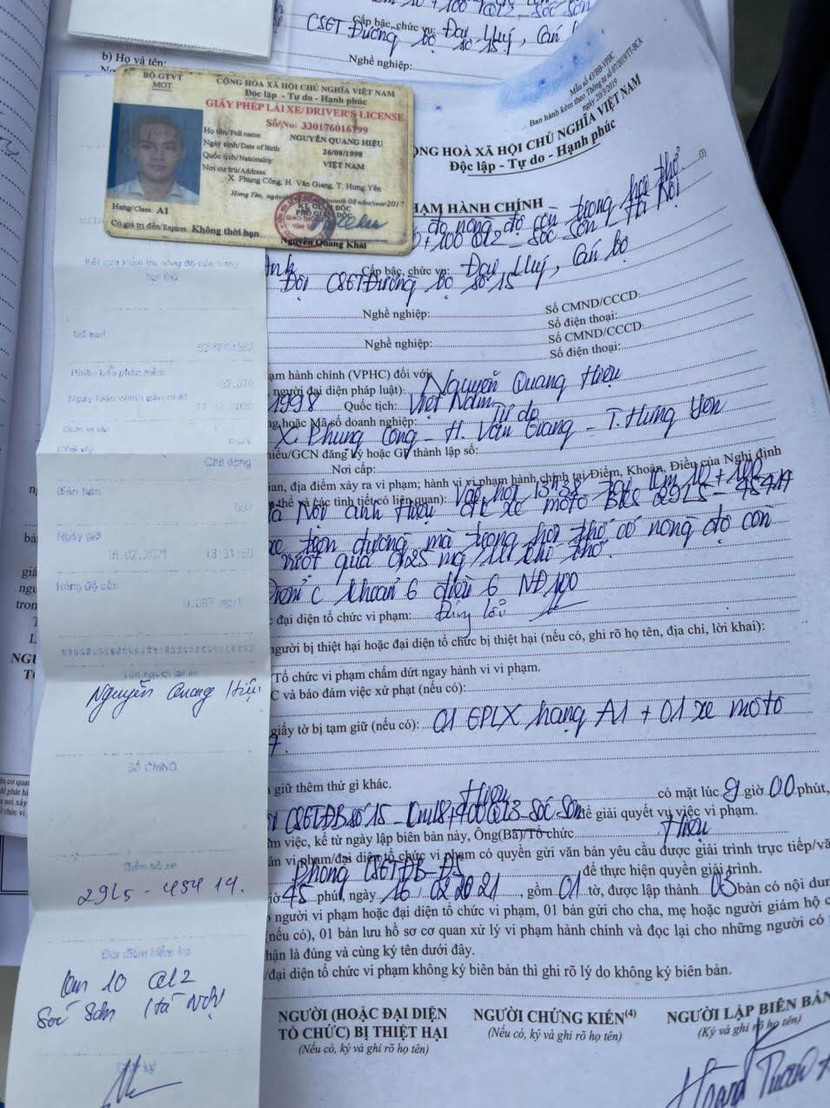 CSGT Đường bộ số 15
Cấp bậc, chức vụ: Đại Uý, Cán
b) Họ và tên:
Nghề nghiệp:
BỘ GTVT
MOT
CỘNG HÒA XÃ HỘI CHỦ NGHĨA VIỆT NAM
Độc lập - Tự do - Hạnh phúc
GIẤY PHÉP LÁI XE/DRIVER'S LICENSE
Số/No: 330176016799
Họ tên/Full name
NGUYỄN QUANG HIỆU
Ngày sinh/Date of Birth
26/08/1998
Quốc tịch/Nationality
VIỆT NAM
Nơi cư trú/Address
X. Phụng Công, H. Văn Giang, T. Hưng Yên
Hưng Yên,
Hạng/Class: A1
Có giá trị đến/Expires: Không thời hạn
PHÓ GIÁM ĐỐC
Nguyễn Quang Khải
Mẫu số 43/BB-VPHC
Ban hành kèm theo Thông tư số
ngày 20/3/2019
ỘNG HOÀ XÃ HỘI CHỦ NGHĨA VIỆT NAM
Độc lập - Tự do - Hạnh phúc
HẠM HÀNH CHÍNH
đo nồng độ cồn trong hơi thở (3)
+100 QL2 - Sóc Sơn - Hà Nội
Cấp bậc, chức vụ: Đại Uý, Cán bộ
Đội CSGT Đường bộ số 15
Nghề nghiệp:
Số CMND/CCCD:
Số điện thoại:
Nghề nghiệp:
Số CMND/CCCD:
Số điện thoại:
ạm hành chính (VPHC) đối với
người đại diện pháp luật): Nguyễn Quang Hiệu
1998 Quốc tịch: Việt Nam
hoặc Mã số doanh nghiệp: Tự do
X. Phụng Công - H. Văn Giang - T. Hưng Yên
iếu/GCN đăng ký hoặc GP thành lập số:
Nơi cấp:
ian, địa điểm xảy ra vi phạm; hành vi vi phạm hành chính tại Điểm, Khoản, Điều của Nghị định
thể và các tình tiết có liên quan): Vào hồi 13h38 tại Km 10 + 100
Hà Nội anh Hiệu đk xe môtô BKS 29L5 - 45414
xe trên đường mà trong hơi thở có nồng độ cồn
vượt quá 0,25 mg/lít khí thở.
Điểm c khoản 6 điều 6 NĐ 100
đại diện tổ chức vi phạm: Đúng lỗi
người bị thiệt hại hoặc đại diện tổ chức bị thiệt hại (nếu có, ghi rõ họ tên, địa chỉ, lời khai):
Tổ chức vi phạm chấm dứt ngay hành vi vi phạm.
C và bảo đảm việc xử phạt (nếu có):
giấy tờ bị tạm giữ (nếu có): 01 GPLX hạng A1 + 01 xe môtô
giữ thêm thứ gì khác.
Hiệu có mặt lúc 9 giờ 00 phút,
CSGTĐB số 15 - Km18+400 QL3 - Sóc Sơn để giải quyết vụ việc vi phạm.
m việc, kể từ ngày lập biên bản này, Ông(Bà)/Tổ chức Hiệu
ân vi phạm/đại diện tổ chức vi phạm có quyền gửi văn bản yêu cầu được giải trình trực tiếp/vă
Phòng CSGT ĐB-ĐS để thực hiện quyền giải trình.
iờ 45 phút, ngày 16/02/2021, gồm 01 tờ, được lập thành 03 bản có nội dun
người vi phạm hoặc đại diện tổ chức vi phạm, 01 bản gửi cho cha, mẹ hoặc người giám hộ c
(nếu có), 01 bản lưu hồ sơ cơ quan xử lý vi phạm hành chính và đọc lại cho những người có
hận là đúng và cùng ký tên dưới đây.
/đại diện tổ chức vi phạm không ký biên bản thì ghi rõ lý do không ký biên bản.
NGƯỜI (HOẶC ĐẠI DIỆN
TỔ CHỨC) BỊ THIỆT HẠI
(Nếu có, ký và ghi rõ họ tên)
NGƯỜI CHỨNG KIẾN(4)
(Nếu có, ký và ghi rõ họ tên)
NGƯỜI LẬP BIÊN BẢN
(Ký và ghi rõ họ tên)
Chủ động
Ngày giờ
16.02.2021
Nồng độ cồn
mg/L
Nguyễn Quang Hiệu
Số CMND
29L5 - 454 14.
Km 10 QL2
Sóc Sơn Hà Nội